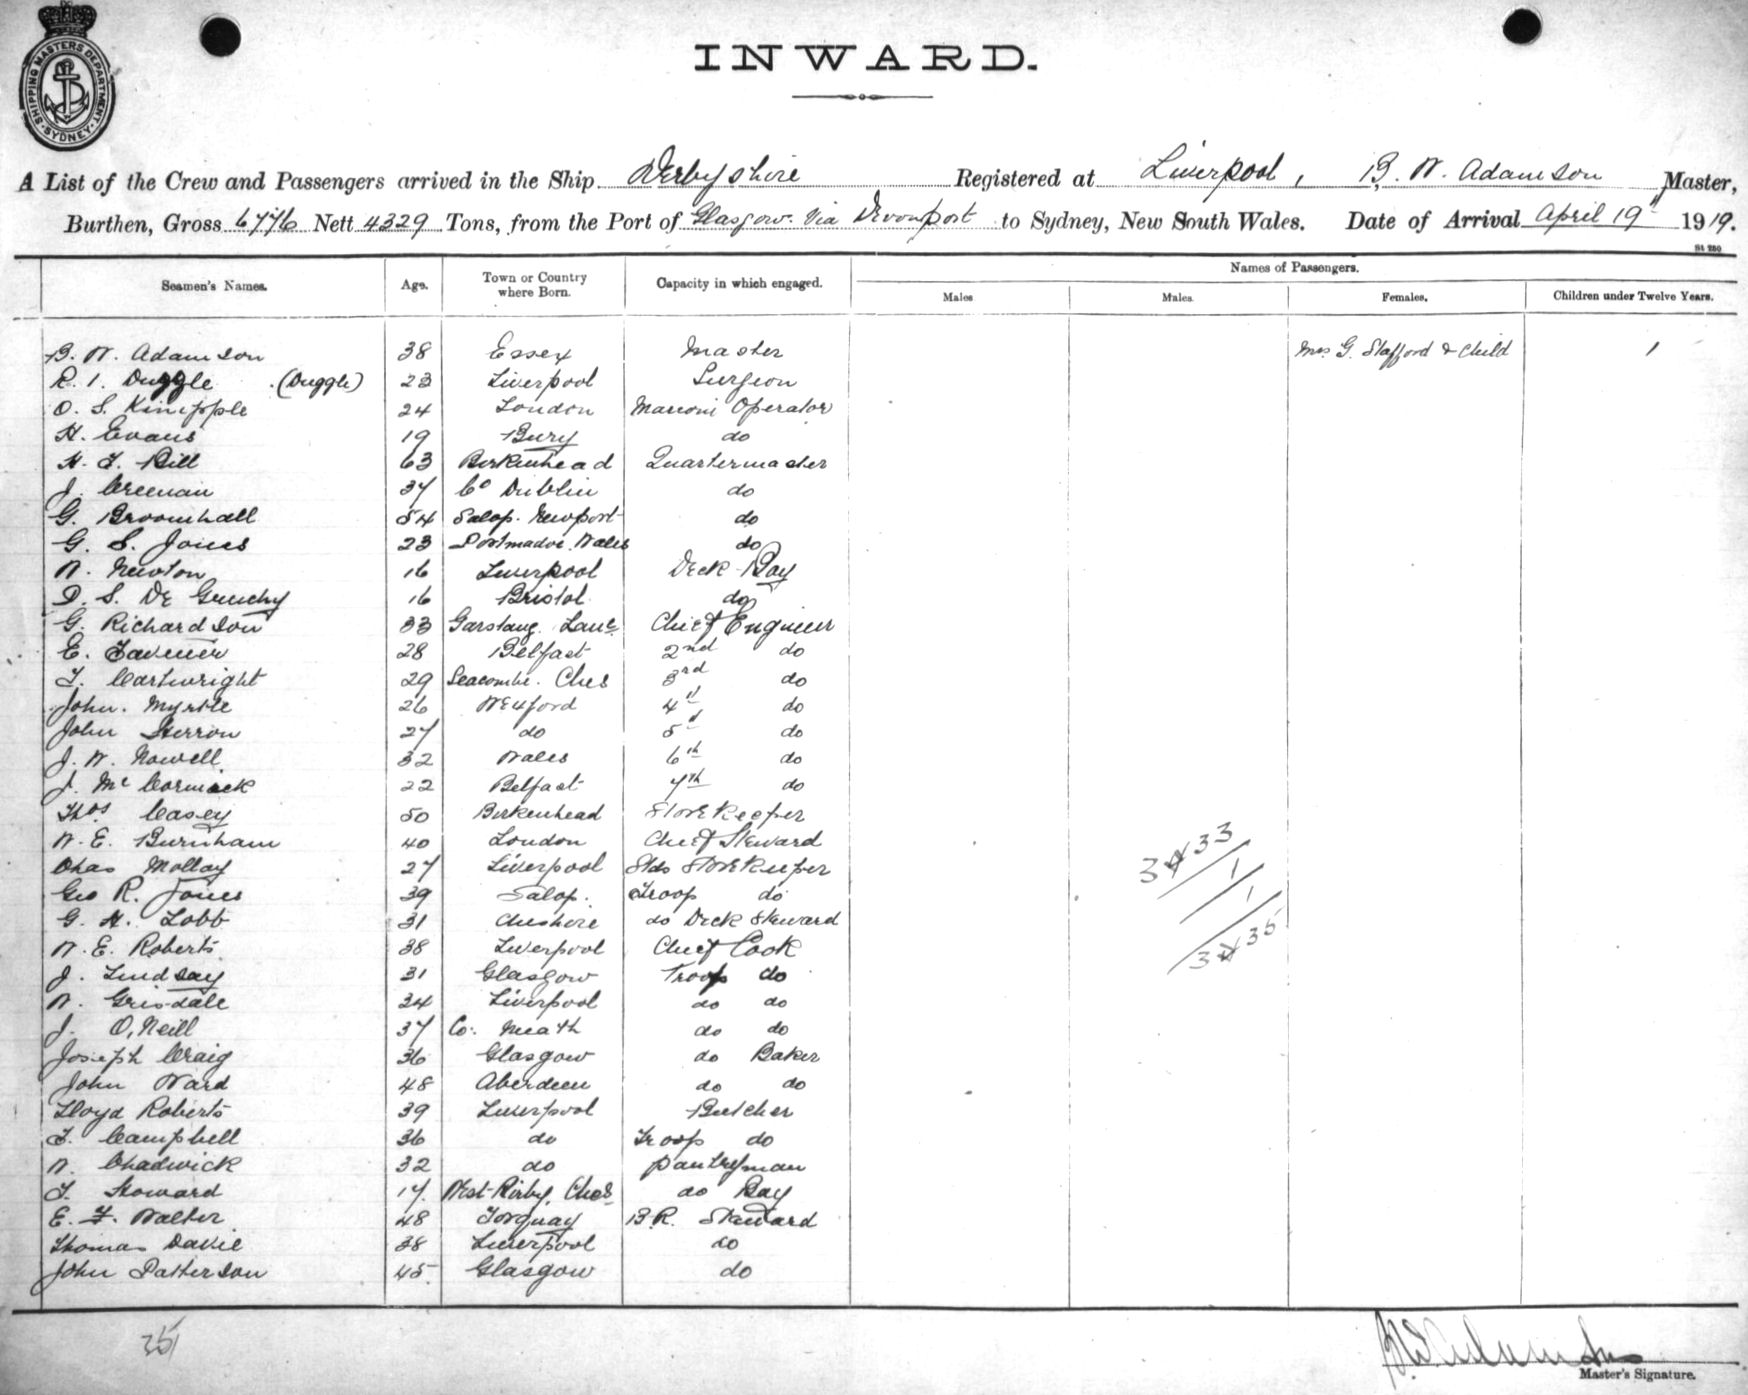 SHIPPING MASTERS DEPARTMENT
SYDNEY
INWARD.
A List of the Crew and Passengers arrived in the Ship Derbyshire Registered at Liverpool, B. W. Adamson Master,
Burthen, Gross 6776 Nett 4329 Tons, from the Port of Glasgow via Devonport to Sydney, New South Wales. Date of Arrival April 19th 1919.
St 280
Seamen's Names. Age. Town or Country where Born. Capacity in which engaged. Names of Passengers.
Males Males. Females. Children under Twelve Years.
B. W. Adamson 38 Essex Master Mrs G. Stafford & Child 1
R. I. Duggle (Duggle) 23 Liverpool Surgeon
O. S. Kinipple 24 London Marconi Operator
H. Evans 19 Bury do
H. J. Bill 63 Birkenhead Quartermaster
J. Creenan 37 Co Dublin do
G. Broomhall 54 Salop. Newport do
G. S. Jones 23 Portmadoc. Wales do
W. Newton 16 Liverpool Deck Boy
D. S. De Gruchy 16 Bristol do
G. Richardson 33 Garstang. Lanc Chief Engineer
E. Tavener 28 Belfast 2nd do
T. Cartwright 29 Seacombe. Ches 3rd do
John. Myrtle 26 Wexford 4th do
John Herron 27 do 5th do
J. W. Nowell 32 Wales 6th do
J. Mc Cormack 22 Belfast 7th do
Thos. Casey 50 Birkenhead Storekeeper
W. E. Burnham 40 London Chief Steward
Chas Molloy 27 Liverpool Stds Storekeeper
Geo R. Jones 39 Salop. Troop do
G. H. Lobb 31 Cheshire do Deck Steward
W. E. Roberts 38 Liverpool Chief Cook
J. Lindsay 31 Glasgow Troop do
W. Grisdale 34 Liverpool do do
J. O'Neill 37 Co. Meath do do
Joseph Craig 36 Glasgow do Baker
John Ward 48 Aberdeen do do
Lloyd Roberts 39 Liverpool Butcher
T. Campbell 36 do Troop do
W. Chadwick 32 do Pantryman
T. Howard 17 West Kirby, Ches do Boy
E. F. Walter 48 Torquay B.R. Steward
Thomas Davie 38 Liverpool do
John Patterson 45 Glasgow do
33
1
1
35
35
Master's Signature.